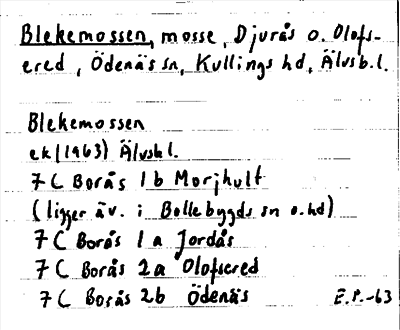 Blekemossen, mosse, Djurås o. Olofs-
ered, Ödenäs sn, Kullings hd, Älvsb.l.
Blekemossen
ek (1963) Älvsb l.
7 C Borås 1b Morjhult
(ligger äv. i Bollebygds sn o. hd)
7 C Borås 1a Jordås
7 C Borås 2a Olofsered
7 C Borås 2b Ödenäs E.P.-63